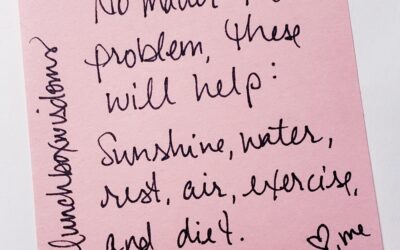 No matter
problem, these
will help:
Sunshine, water,
rest, air, exercise,
and diet.
♡ me
lunchboxwisdoms